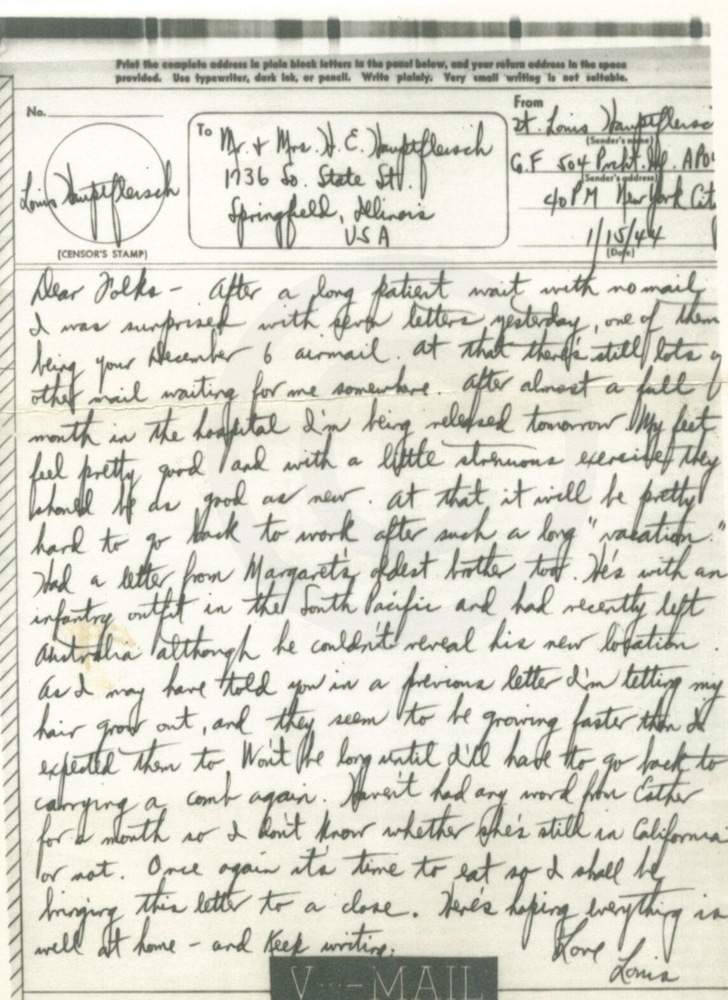 Print the complete address in plain block letters in the panel below, and your return address in the space
provided. Use typewriter, dark ink, or pencil. Write plainly. Very small writing is not suitable.
No.
Louis Hauptfleisch
(CENSOR'S STAMP)
To
Mr. + Mrs. H. E. Hauptfleisch
1736 So. State St.
Springfield, Illinois
USA
From
Lt. Louis Hauptfleisc
(Sender's name)
504 APO
(Sender's address)
c/o PM New York Cit
1/15/44
(Date)
Dear Folks - After a long patient wait with no mail
I was surprised with seven letters yesterday, one of them
being your December 6 airmail. At that there's still lots o
other mail waiting for me somewhere. After almost a full
month in the hospital I'm being released tomorrow. My feet
feel pretty good and with a little strenuous exercise they
should be as good as new. At that it will be pretty
hard to go back to work after such a long "vacation."
Had a letter from Margaret's oldest brother too. He's with an
infantry outfit in the South Pacific and had recently left
Australia although he couldn't reveal his new location.
As I may have told you in a previous letter I'm letting my
hair grow out, and they seem to be growing faster than I
expected them to. Won't be long until I'll have to go back to
carrying a comb again. Haven't had any word from Esther
for a month so I don't know whether she's still in California
or not. Once again it's time to eat so I shall be
bringing this letter to a close. Here's hoping everything is
well at home - and keep writing.
Love
Louis
V···-MAIL